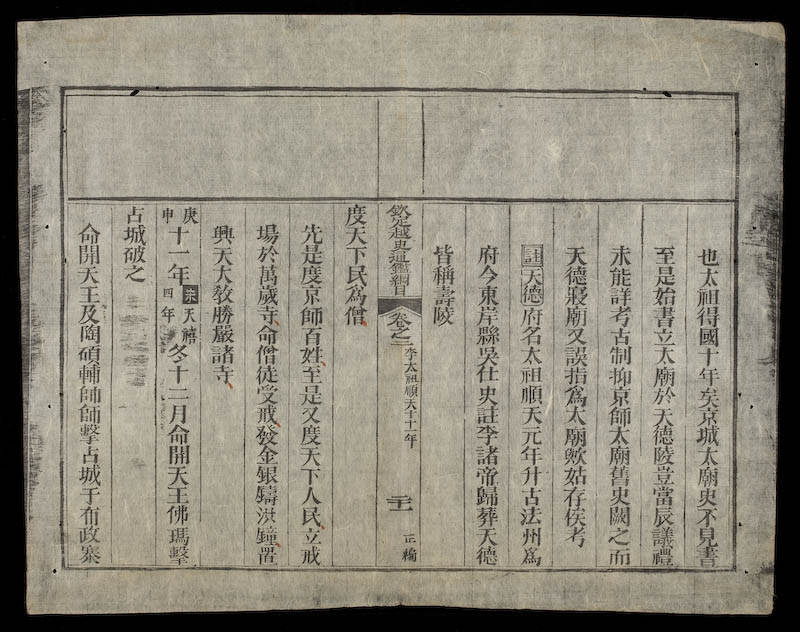 也太祖得國十年矣京城太廟史不見書
至是始書立太廟於天德陵豈當辰議禮
未能詳考古制抑京師太廟舊史闕之而
天德寢廟又誤指爲太廟歟姑存俟考
註天德府名太祖順天元年升古法州爲
府今東岸縣吳仕史註李諸帝歸葬天德
皆稱壽陵
欽定越史通鑑綱目 卷之二 李太祖順天十一年 二十一 正編
度天下民爲僧
先是度京師百姓至是又度天下人民立戒
場於萬歲寺命僧徒受戒發金銀鑄洪鐘置
興天大敎勝嚴諸寺
庚申十一年宋天禧四年冬十二月命開天王佛瑪擊
占城破之
命開天王及陶碩輔帥師擊占城于布政寨